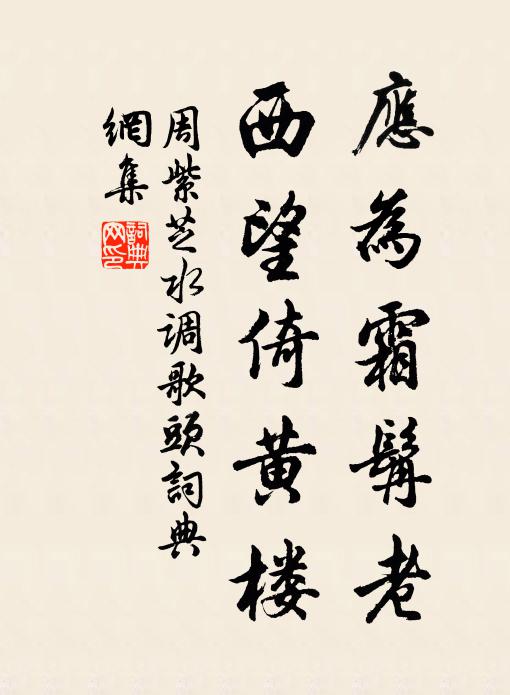 應為霜鬢老
西望倚黄楼
周紫芝水调歌頭詞典
網集
詞典
网印